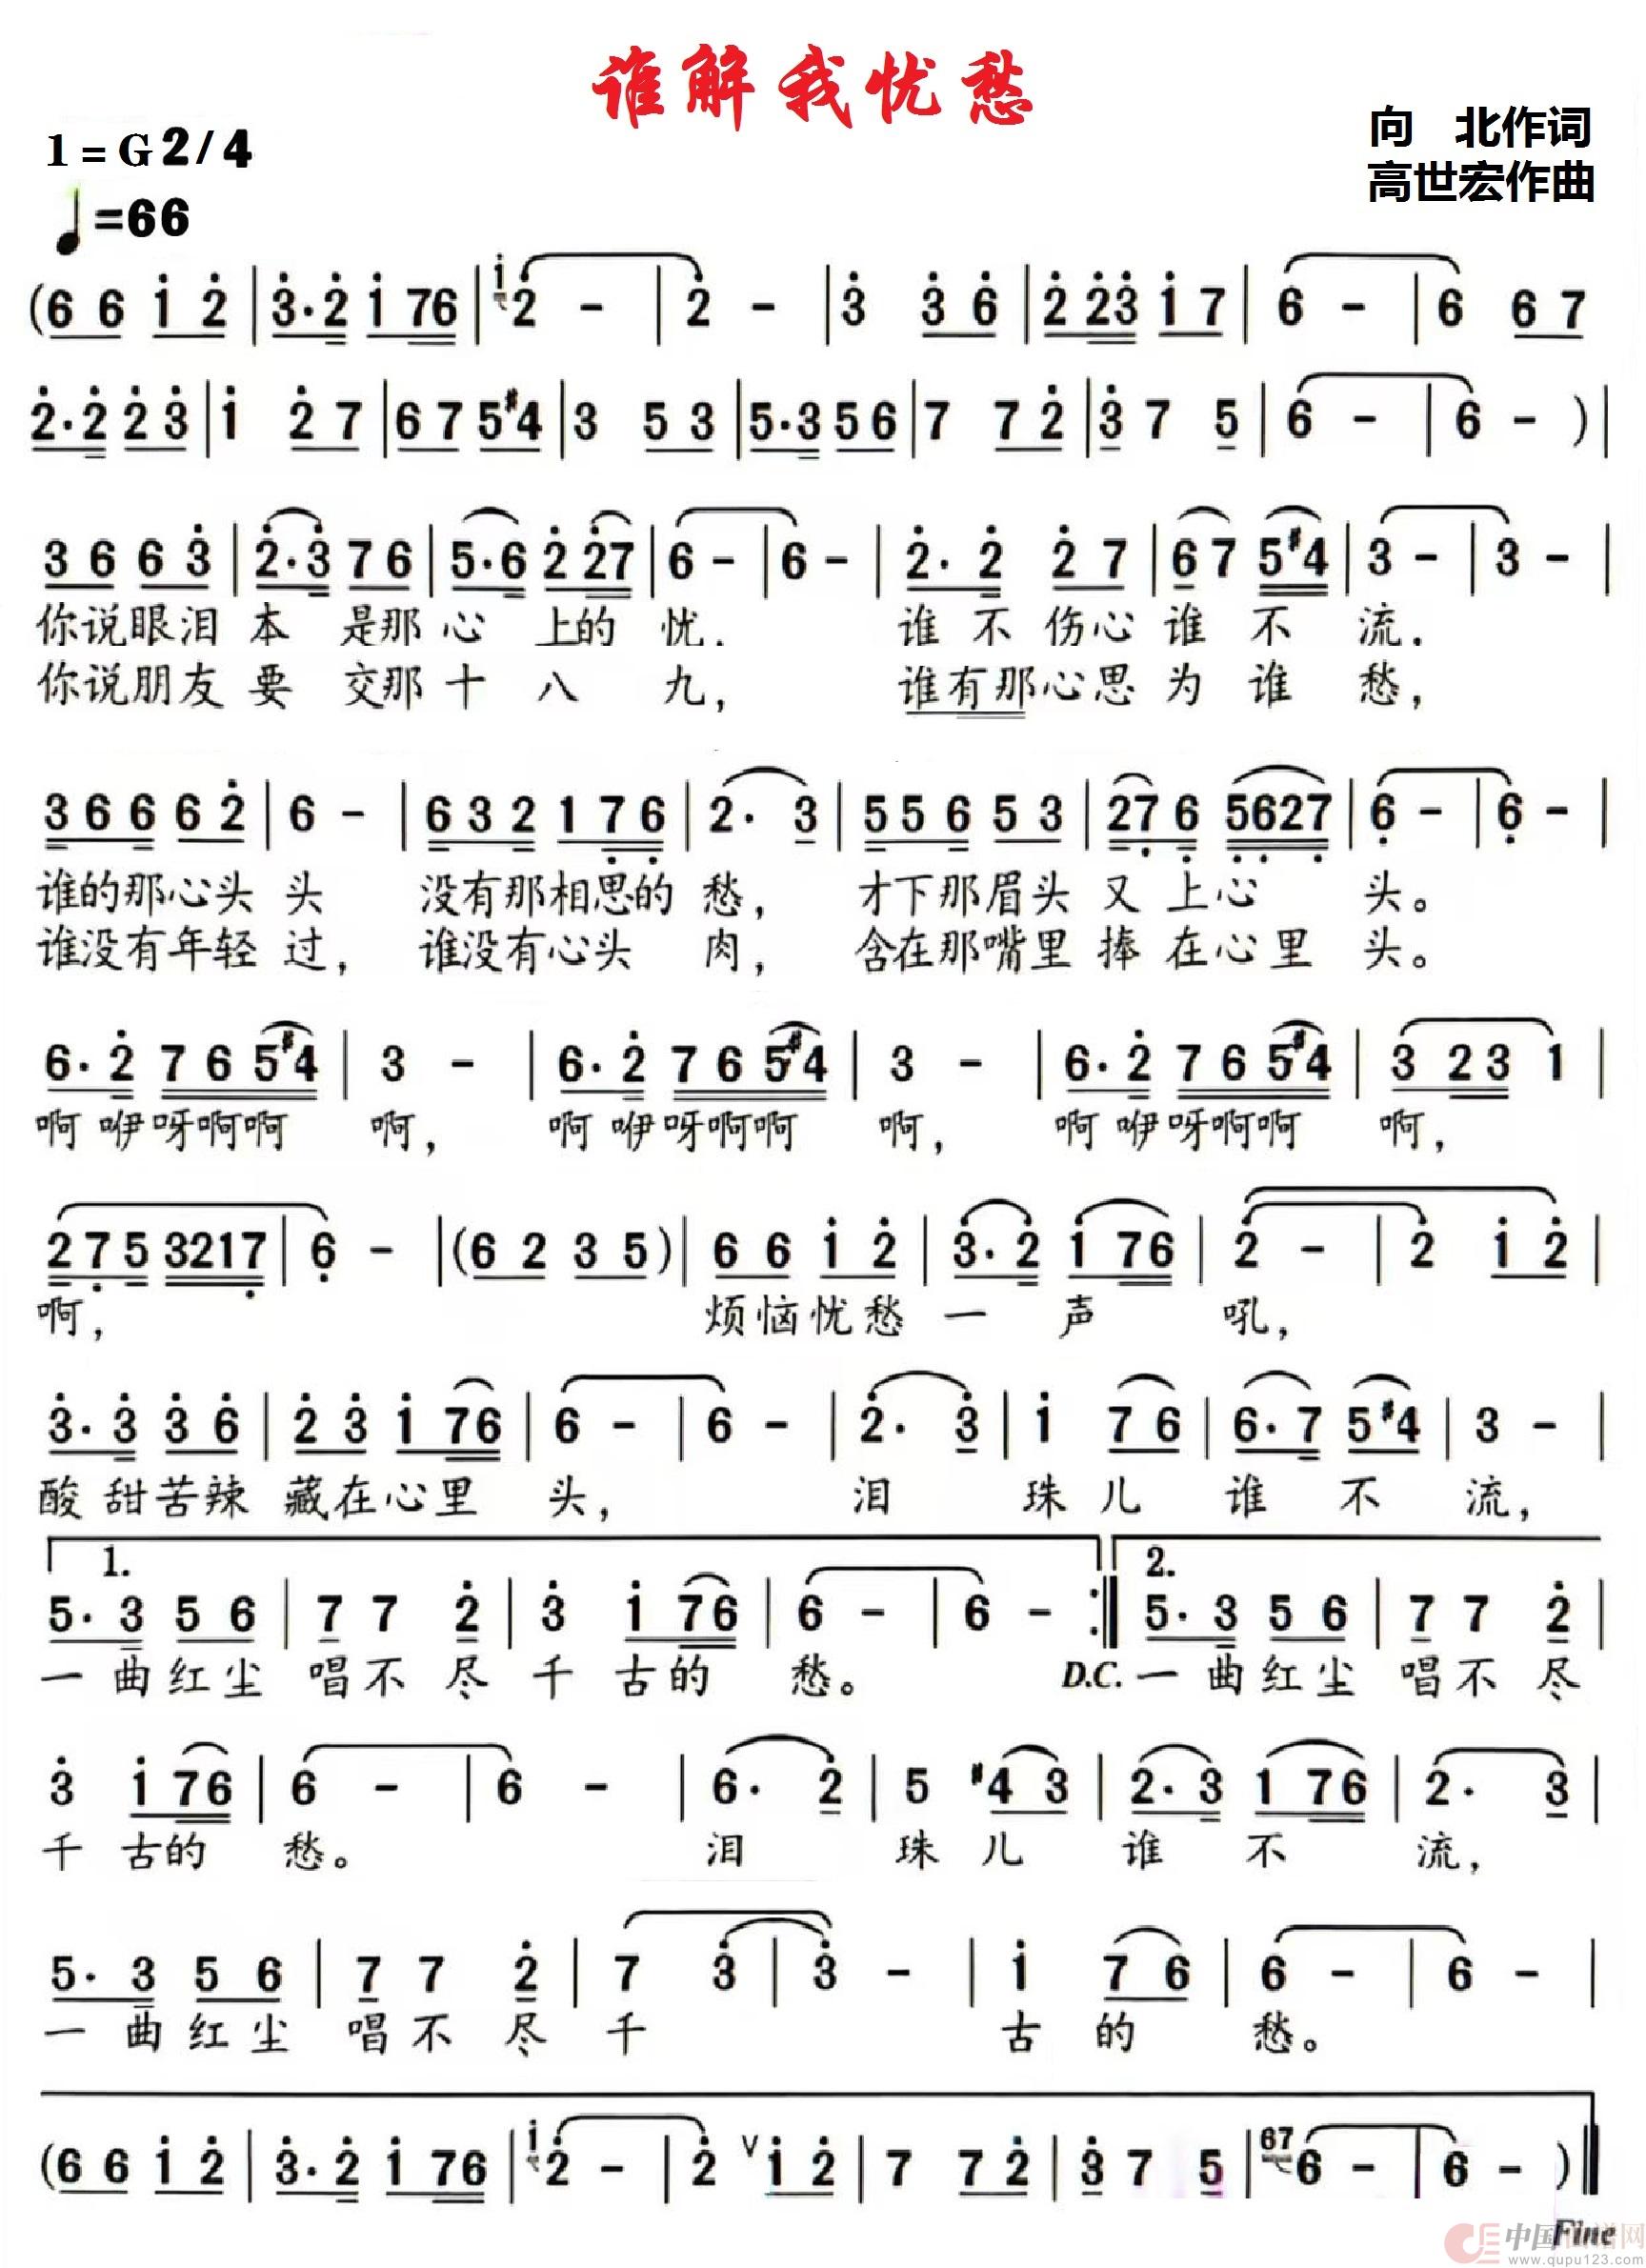 谁解我忧愁
1=G 2/4
向 北作词
♩=66
高世宏作曲
(6 6 i 2̇ | 3̇·2̇ i 76 | i 2̇ - | 2̇ - | 3̇ 3̇ 6̇ | 2̇ 2̇3̇ i 7 | 6 - | 6 6 7
2̇·2̇ 2̇ 3̇ | i 2̇ 7 | 6 7 5 #4 | 3 5 3 | 5·3 5 6 | 7 7 2̇ | 3̇ 7 5 | 6 - | 6 - ) |
3 6 6 3̇ | 2̇·3̇ 7 6 | 5·6 2̇ 2̇7 | 6 - | 6 - | 2̇· 2̇ 2̇ 7 | 6 7 5#4 | 3 - | 3 - |
你说眼泪 本 是那 心 上的 忧. 谁 不 伤心 谁 不 流.
你说朋友 要 交那 十 八 九, 谁有那心思 为 谁 愁,
3 6 6 6 2̇ | 6 - | 6 3 2 1 7̣ 6̣ | 2· 3 | 5 5 6 5 3 | 27̣ 6̣ 5̣6̣27̣ | 6̣ - | 6̣ - |
谁的那心头 头 没有那相思的 愁, 才下那眉头 又 上 心 头。
谁没有年轻 过, 谁没有心头 肉, 含在那嘴里 捧 在心里 头。
6·2̇ 7 6 5#4 | 3 - | 6·2̇ 7 6 5#4 | 3 - | 6·2̇ 7 6 5#4 | 3 23 1 |
啊 咿呀啊啊 啊, 啊 咿呀啊啊 啊, 啊 咿呀啊啊 啊,
2 7̣ 5̣ 3217̣ | 6̣ - | (6 2 3 5) | 6 6 i 2̇ | 3̇·2̇ i 76 | 2̇ - | 2̇ i 2̇ |
啊, 烦恼忧愁 一 声 吼,
3̇·3̇ 3̇ 6̇ | 2̇ 3̇ i 76 | 6 - | 6 - | 2̇· 3̇ | i 7 6 | 6·7 5 #4 | 3 - |
酸 甜苦辣 藏在心里 头, 泪 珠 儿 谁 不 流,
1. 2.
5·3 5 6 | 7 7 2̇ | 3̇ i 76 | 6 - | 6 - :‖ 5·3 5 6 | 7 7 2̇ |
一 曲红尘 唱不 尽 千 古的 愁。 D.C. 一 曲红尘 唱不 尽
3̇ i 76 | 6 - | 6 - | 6· 2̇ | 5 #4 3 | 2̇·3̇ i 76 | 2· 3 |
千 古的 愁。 泪 珠 儿 谁 不 流,
5·3 5 6 | 7 7 2̇ | 7 3̇ | 3̇ - | i 7 6 | 6 - | 6 - |
一 曲红尘 唱不 尽 千 古 的 愁。
(6 6 i 2̇ | 3̇·2̇ i 76 | i 2̇ - | 2̇ ∨ i 2̇ | 7 7 2̇ | 3̇ 7 5 | 67 6 - | 6 - ) ‖
Fine
www.qupu123.com